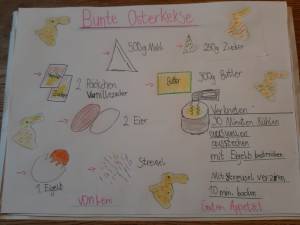 Bunte Osterkekse
500g Mehl
250g Zucker
2 Päckchen
Vanillezucker
Butter
300g Butter
2 Eier
1 Eigelb
Streusel
Verkneten
30 Minuten kühlen
auswellen
ausstechen
mit Eigelb bestreichen
Mit Streusel verzieren
10 min. backen
von Leni
Guten Appetit!